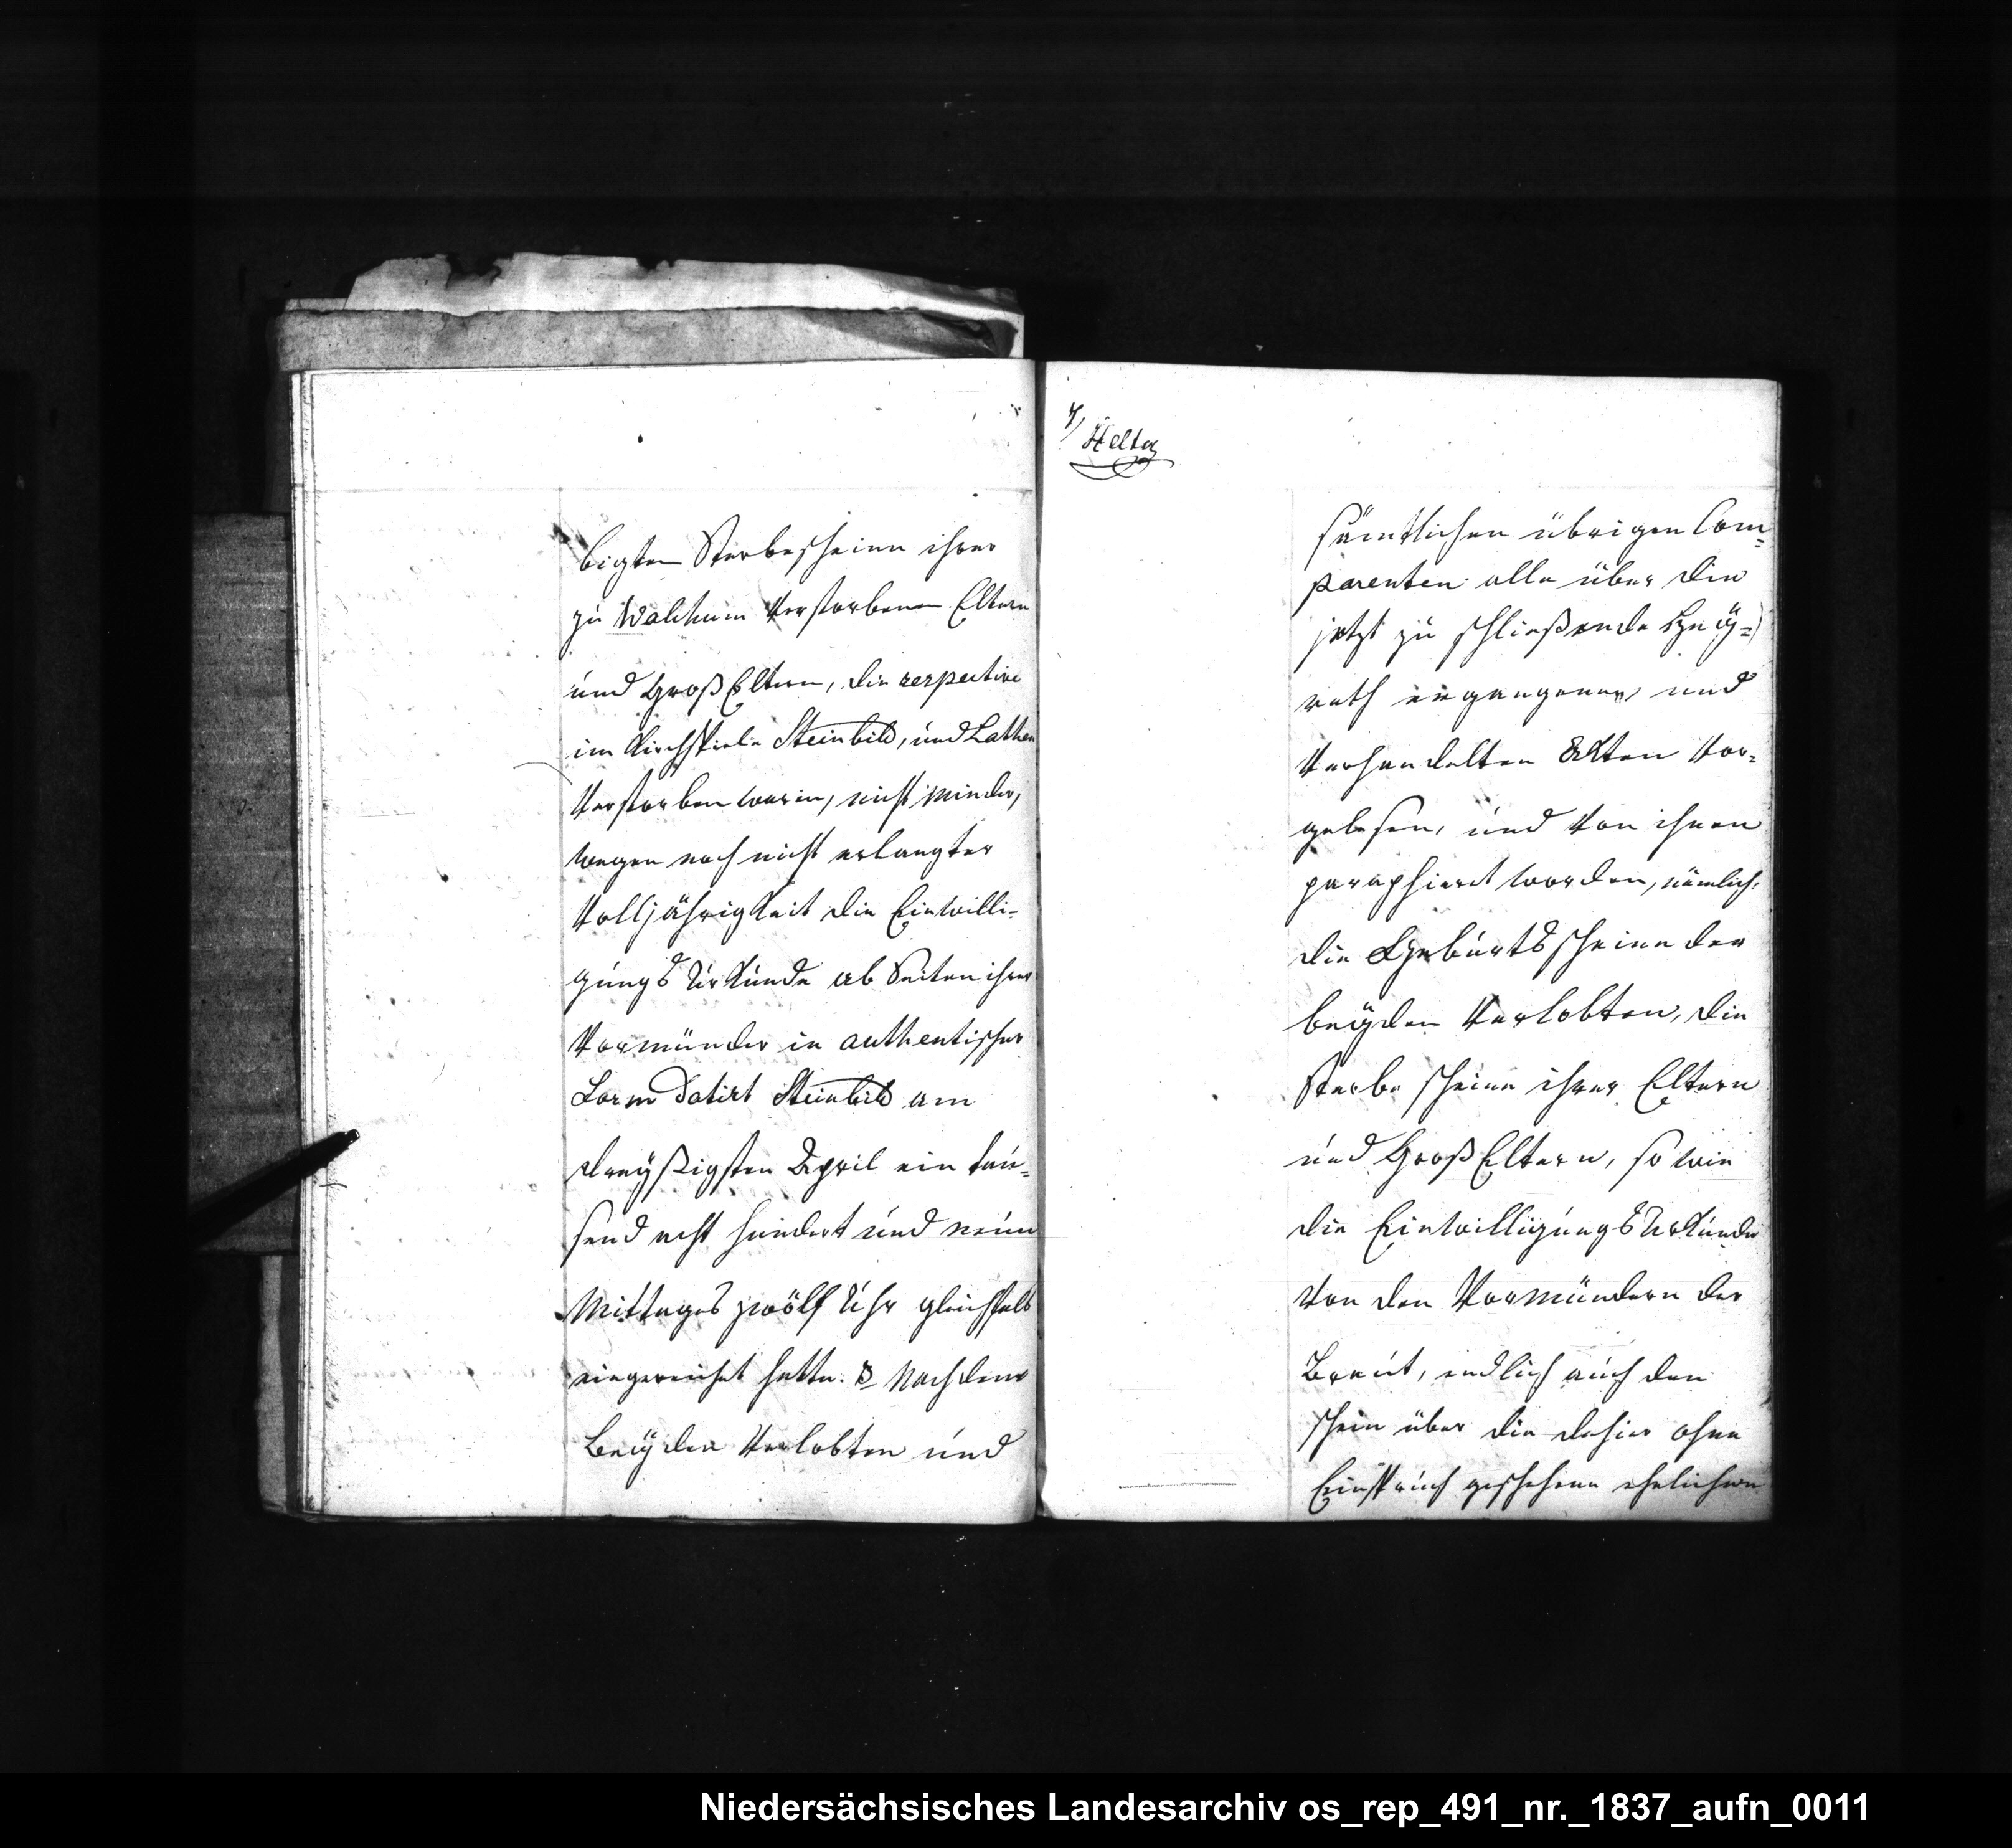 bigten Sterbescheine ihrer
zu Walchum Verstorbenen Eltern
und GroßEltern, die respective
im Kirchspiele Steinbild, und Lathen
Verstorben waren, nicht minder,
wegen noch nicht erlangter
Volljährigkeit die Einwilli-
gungs Urkunde ab Seiten ihrer
Vormünder in authentischer
Form Datirt Steinbild am
dreyßigsten April ein tau-
send acht hundert und neun
Mittages zwölf Uhr gleichfals
eingereichet hatte. Nachdem
Beyden Verlobten und
7,
sämtlichen übrigen Com=
parenten alle über die
jetzt zu schließende Hey=
rath ergangenen, und
Verhandelten Akten Vor=
gelesen, und Von ihnen
paraphiert worden, nämlich:
die Geburtsscheine der
beyden Verlobten, die
Sterbe scheine ihrer Eltern
und GroßEltern, so wie
die EinwilligungsUrkunde
Von den Vormündern der
Braut, endlich auch den
schein über die dahier ohne
Einspruch geschehene ehelichen
Niedersächsisches Landesarchiv os_rep_491_nr._1837_aufn_0011